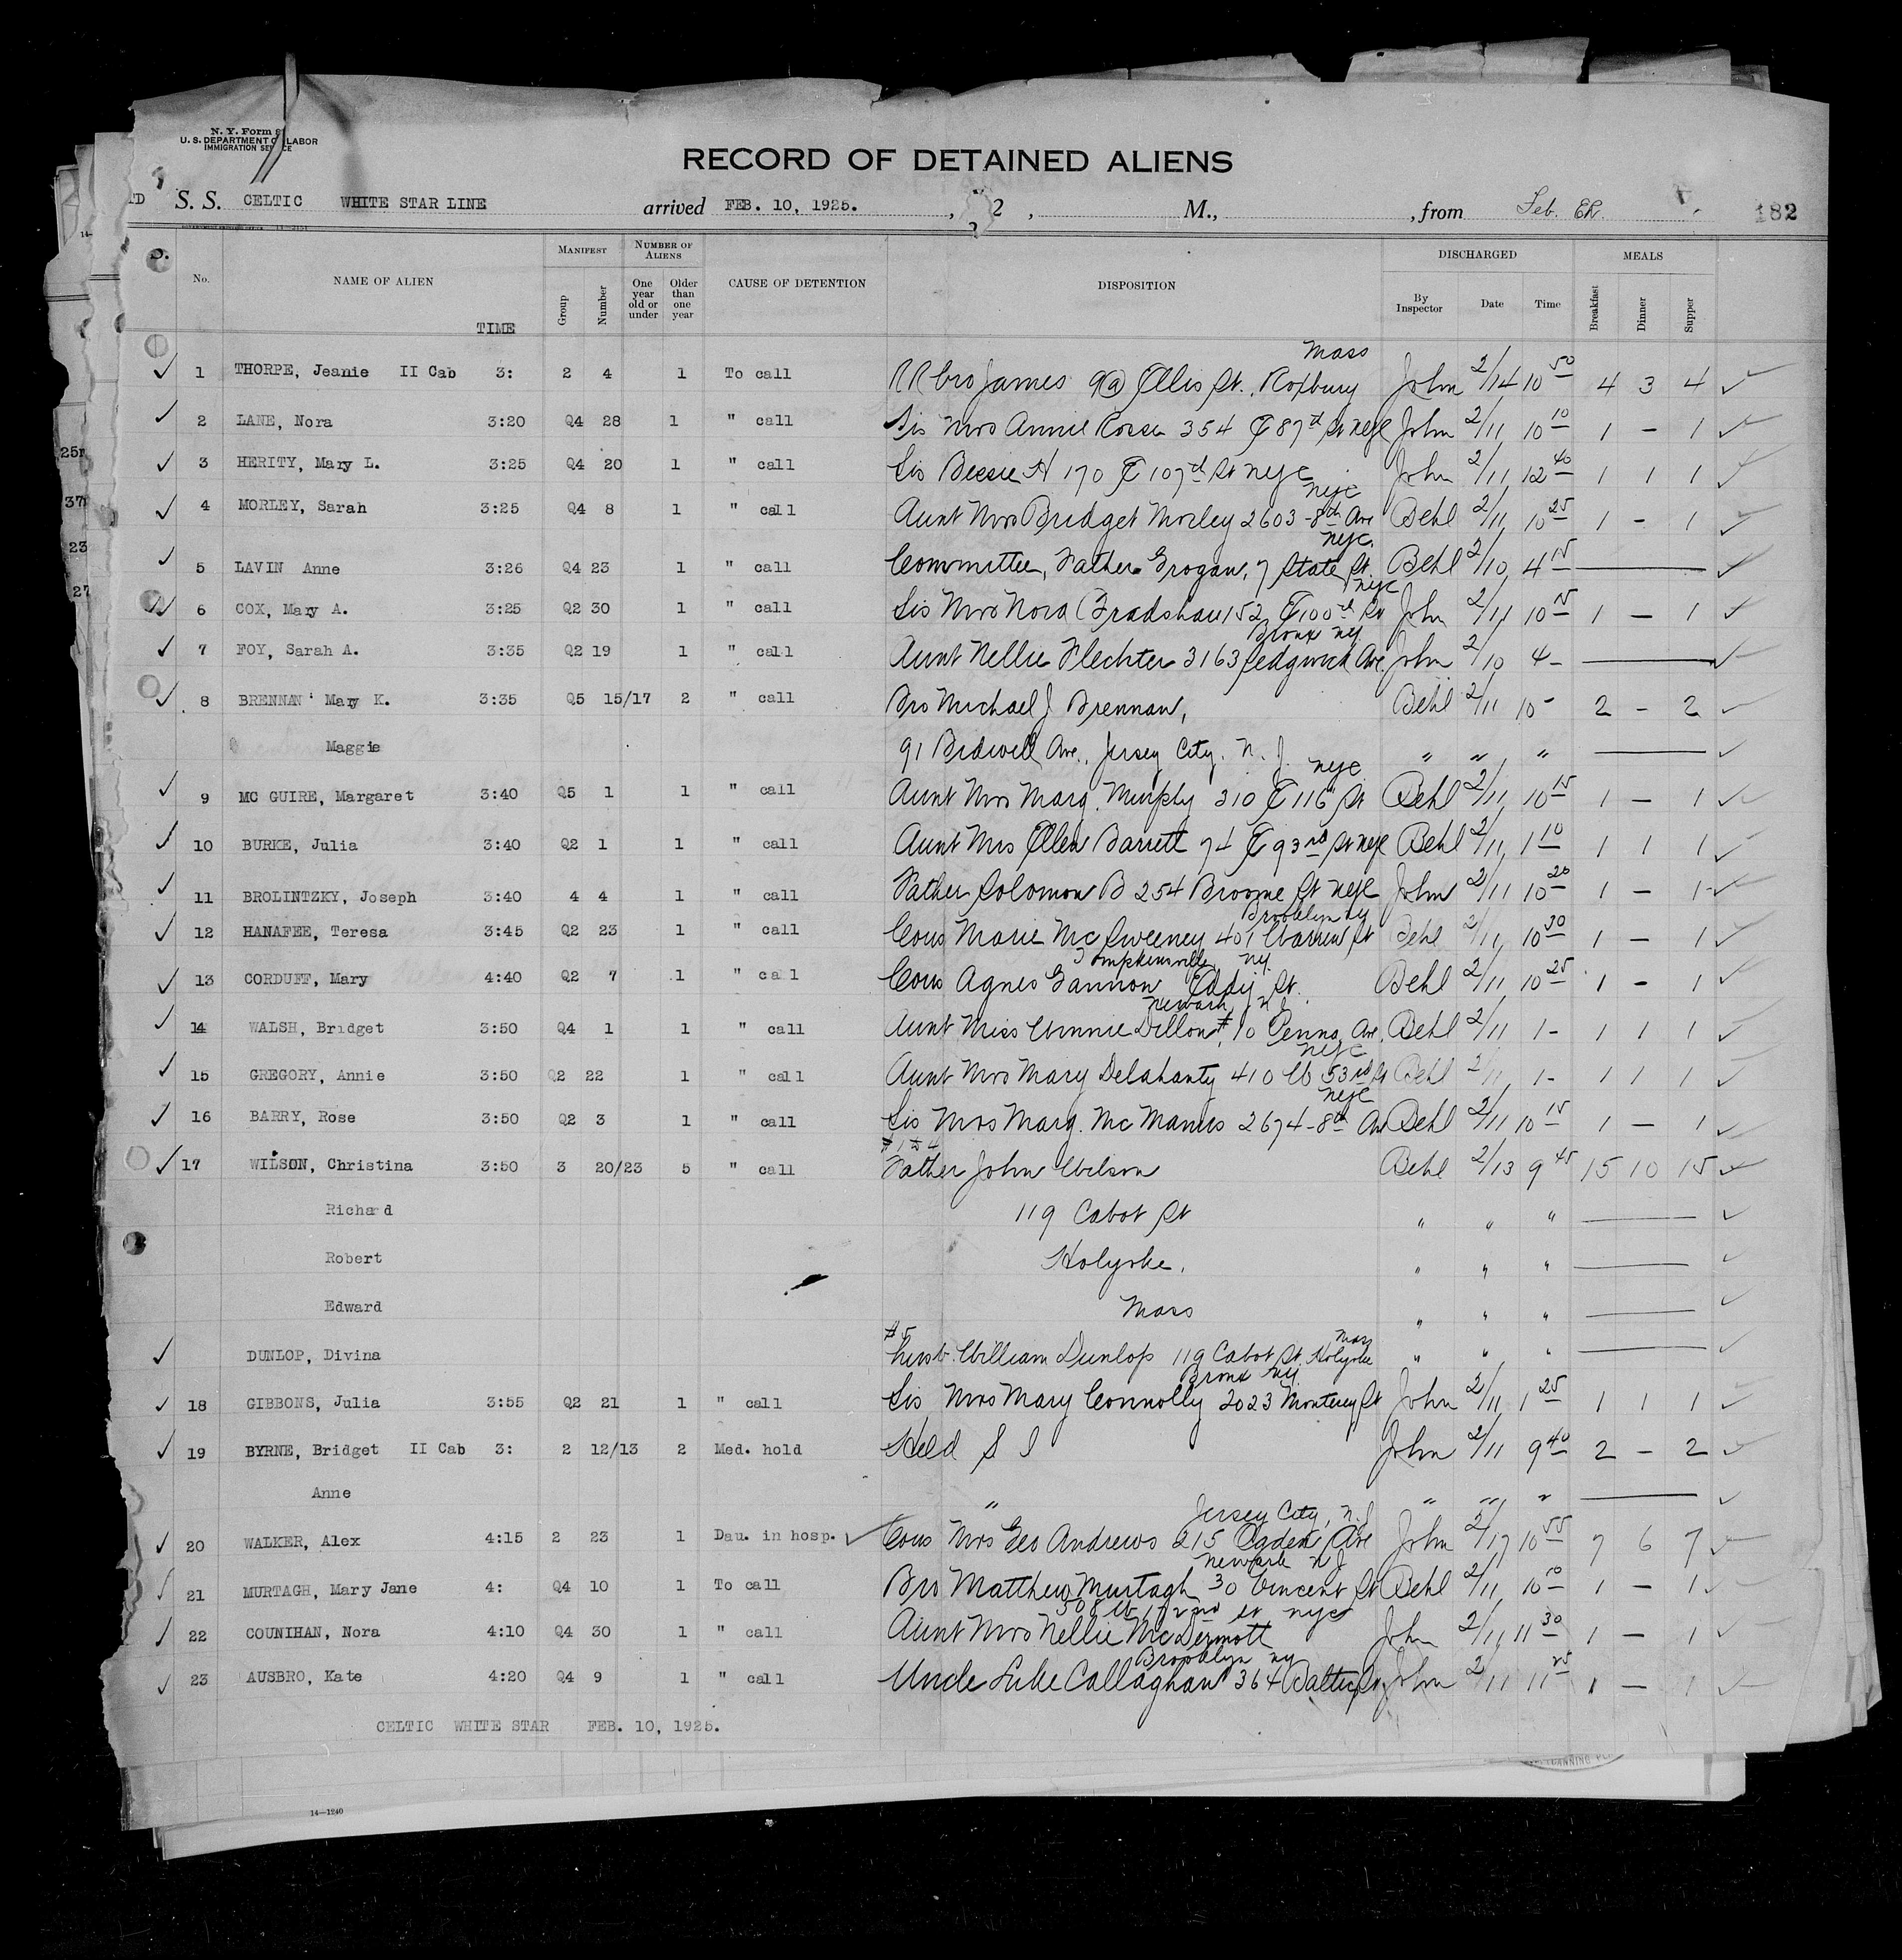 N. Y. Form 8
U. S. DEPARTMENT OF LABOR
IMMIGRATION SERVICE
RECORD OF DETAINED ALIENS
S. S. CELTIC WHITE STAR LINE arrived FEB. 10, 1925. , 2 , M., , from 182
No. NAME OF ALIEN TIME MANIFEST Group Number NUMBER OF ALIENS One year old or under Older than one year CAUSE OF DETENTION DISPOSITION DISCHARGED By Inspector Date Time MEALS Breakfast Dinner Supper
Mass
1 THORPE, Jeanie II Cab 3: 2 4 1 To call RR bro James 9(a) Ellis St., Roxbury John 2/14 10 50 4 3 4
2 LANE, Nora 3:20 Q4 28 1 " call Sis Mrs Annie 354 E 87th St NYC John 2/11 10 10 1 – 1
3 HERITY, Mary L. 3:25 Q4 20 1 " call Sis Bessie H 170 E 107th St NYC John 2/11 12 40 1 1 1
NYC
4 MORLEY, Sarah 3:25 Q4 8 1 " call Aunt Mrs Bridget Morley 2603 - 8th Ave Behl 2/11 10 25 1 – 1
NYC.
5 LAVIN Anne 3:26 Q4 23 1 " call Committee, Father Grogan, 7 State St. Behl 2/10 4 15
NYC
6 COX, Mary A. 3:25 Q2 30 1 " call Sis Mrs Nora Bradshaw 152 E 100th St John 2/11 10 15 1 – 1
Bronx NY
7 FOY, Sarah A. 3:35 Q2 19 1 " call Aunt Nellie Flechter 3163 Sedgwick Ave. John 2/10 4 –
8 BRENNAN Mary K. 3:35 Q5 15/17 2 " call Bro Michael J Brennan, Behl 2/11 10 – 2 – 2
Maggie 91 Bidwell Ave., Jersey City. N. J. " " "
NYC
9 MC GUIRE, Margaret 3:40 Q5 1 1 " call Aunt Mrs Marg. Murphy 310 E 116 St Behl 2/11 10 15 1 – 1
10 BURKE, Julia 3:40 Q2 1 1 " call Aunt Mrs Ellen Barrett 74 E 93rd St NYC Behl 2/11 1 10 1 1 1
11 BROLINTZKY, Joseph 3:40 4 4 1 " call Father Solomon B 254 Broome St NYC John 2/11 10 20 1 – 1
Brooklyn NY
12 HANAFEE, Teresa 3:45 Q2 23 1 " call Cous Marie McSweeney 401 Warren St Behl 2/11 10 30 1 – 1
Tompkinsville NY.
13 CORDUFF, Mary 4:40 Q2 7 1 " call Cous Agnes Gannon Eddy St. Behl 2/11 10 25 1 – 1
Newark, N J.
14 WALSH, Bridget 3:50 Q4 1 1 " call Aunt Miss Winnie Dillon, 10 Penna. Ave. Behl 2/11 1 – 1 1 1
NYC
15 GREGORY, Annie 3:50 Q2 22 1 " call Aunt Mrs Mary Delahanty 410 W 53rd St Behl 2/11 1 – 1 1 1
NYC
16 BARRY, Rose 3:50 Q2 3 1 " call Sis Mrs Marg. McManus 2674 - 8th Av Behl 2/11 10 15 1 – 1
# 1 to 4
17 WILSON, Christina 3:50 3 20/23 5 " call Father John Wilson Behl 2/13 9 45 15 10 15
Richard 119 Cabot St " " "
Robert Holyoke, " " "
Edward Mass " " "
#5 Mass
DUNLOP, Divina husb. William Dunlop 119 Cabot St. Holyoke " " "
Bronx NY.
18 GIBBONS, Julia 3:55 Q2 21 1 " call Sis Mrs Mary Connolly 2023 Monterey St John 2/11 1 25 1 1 1
19 BYRNE, Bridget II Cab 3: 2 12/13 2 Med. hold Held S I John 2/11 9 40 2 – 2
Anne " " " "
Jersey City, N. J
20 WALKER, Alex 4:15 2 23 1 Dau. in hosp. Cous Mrs Geo Andrews 215 Ogden Ave John 2/17 10 55 7 6 7
Newark N J
21 MURTAGH, Mary Jane 4: Q4 10 1 To call Bro Matthew Murtagh 30 Vincent St Behl 2/11 10 50 1 – 1
308 W 172nd St NYC
22 COUNIHAN, Nora 4:10 Q4 30 1 " call Aunt Mrs Nellie McDermott John 2/11 11 30 1 – 1
Brooklyn NY
23 AUSBRO, Kate 4:20 Q4 9 1 " call Uncle Luke Callaghan 364 Baltic St John 2/11 11 25 1 – 1
CELTIC WHITE STAR FEB. 10, 1925.
14—1240